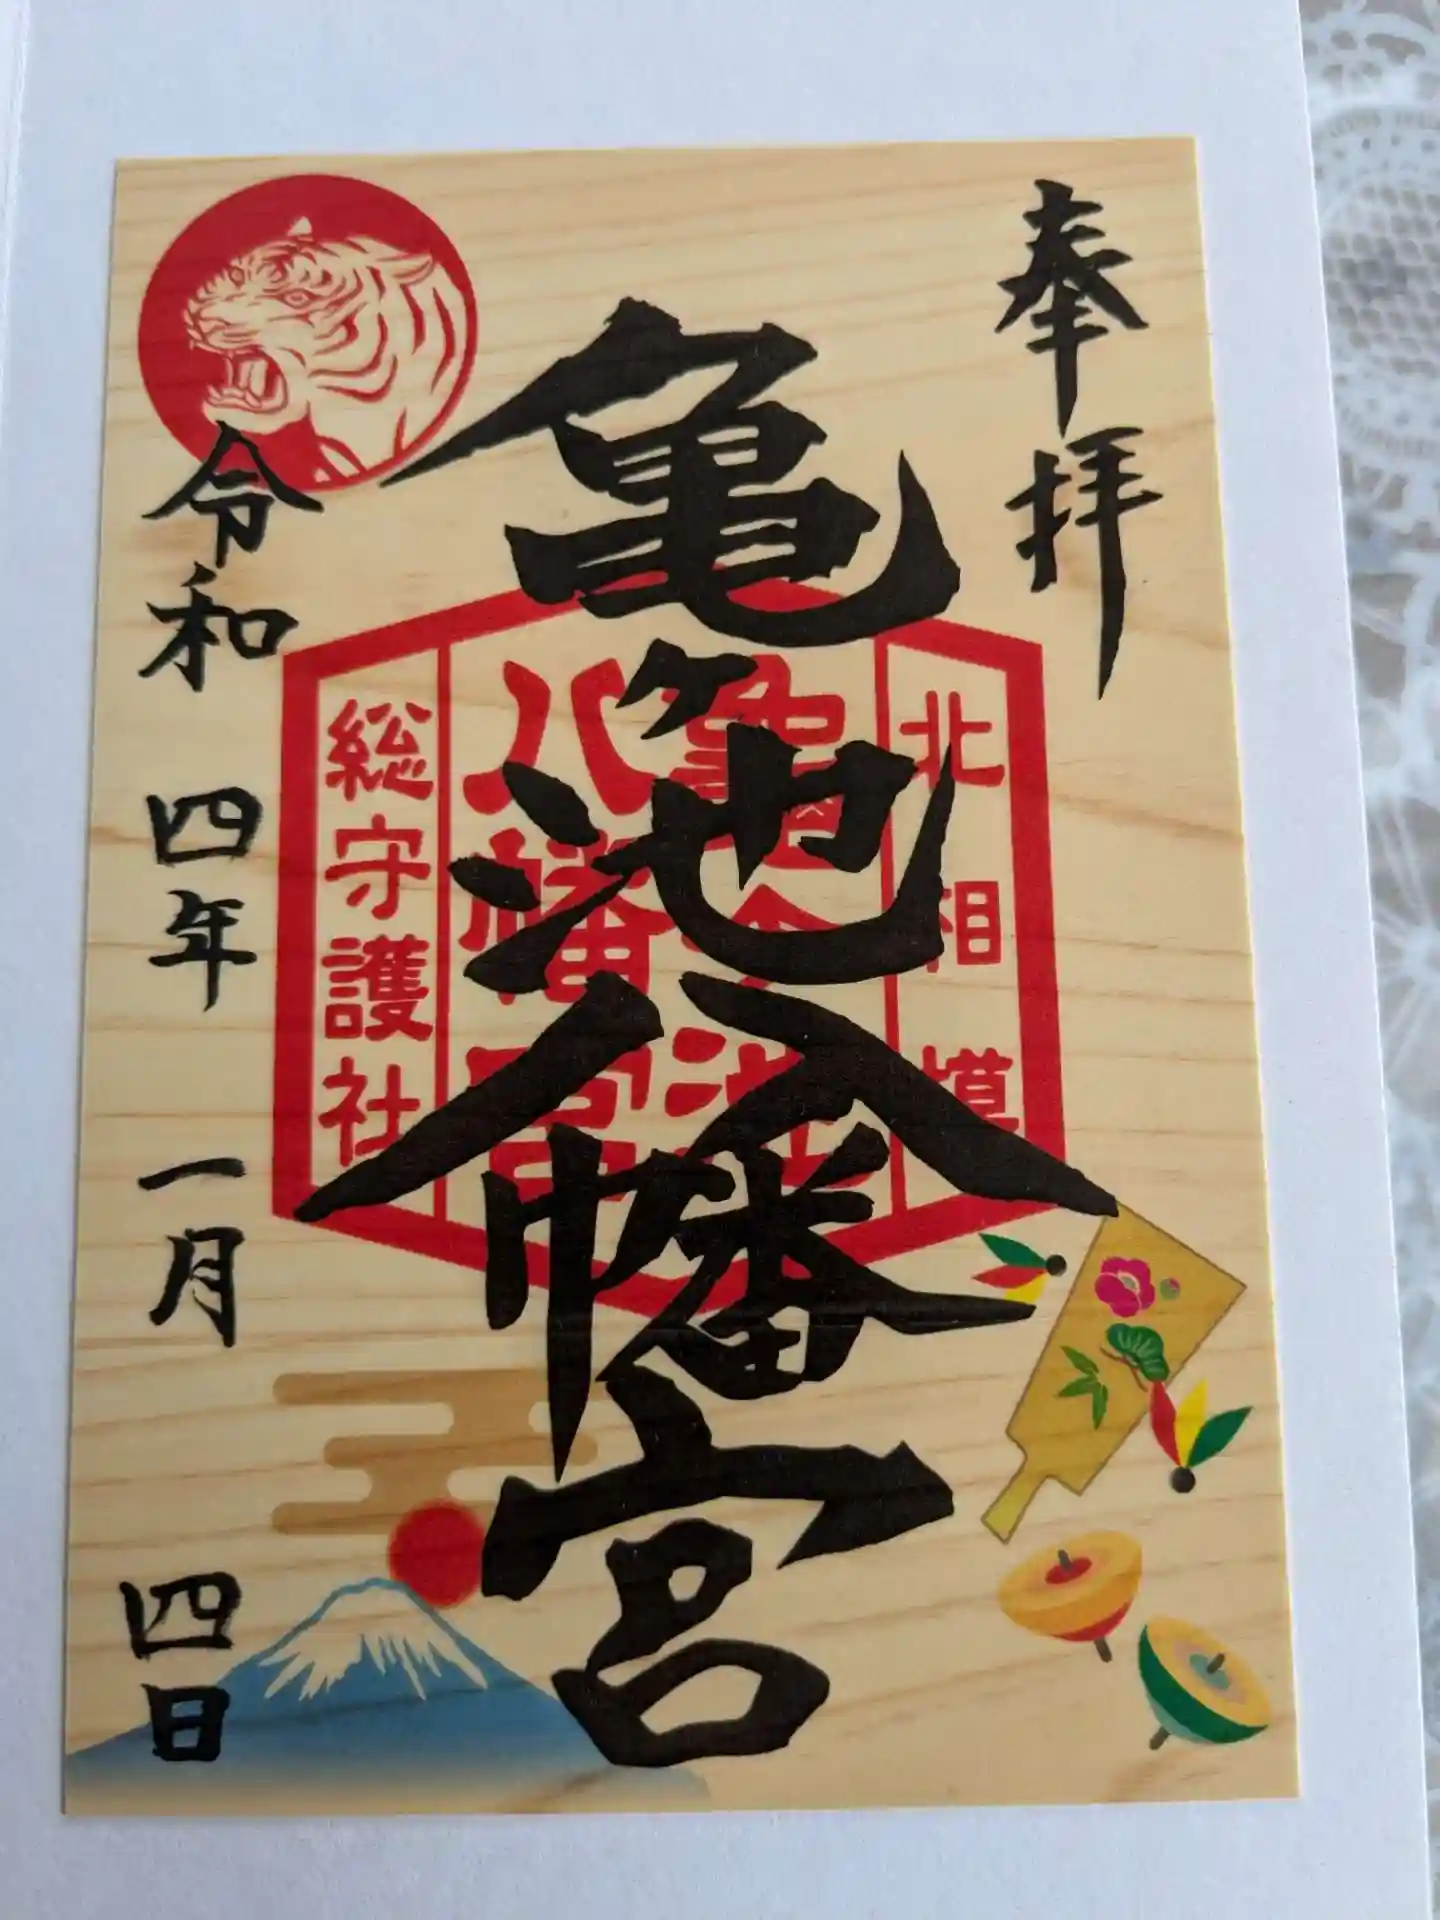 奉拝
亀ヶ池八幡宮
北相模
亀ヶ池
八幡宮
総守護社
令和四年一月四日